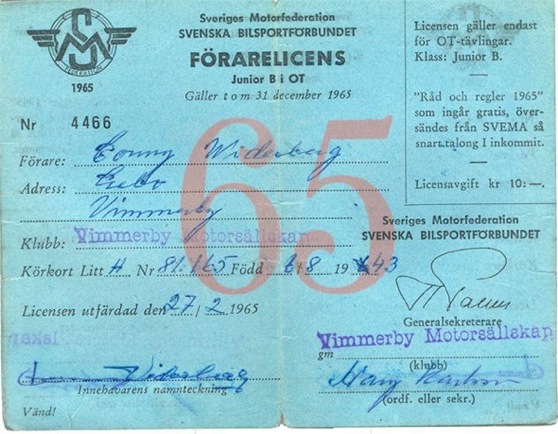 SMF
FEDERATION
1965
Sveriges Motorfederation
SVENSKA BILSPORTFÖRBUNDET
FÖRARELICENS
Junior B i OT
Gäller t o m 31 december 1965
Nr 4466
65
Förare: Conny Widerberg
Adress:
Vimmerby
Klubb: Vimmerby Motorsällskap
Körkort Litt H Nr 81.165 Född 6/8 1943
Licensen utfärdad den 27/2 1965
Widerberg
Innehavarens namnteckning
Vänd!
Licensen gäller endast
för OT-tävlingar.
Klass: Junior B.
"Råd och regler 1965"
som ingår gratis, över-
sändes från SVEMA så
snart talong I inkommit.
Licensavgift kr 10:—.
Sveriges Motorfederation
SVENSKA BILSPORTFÖRBUNDET
Generalsekreterare
Vimmerby Motorsällskap
gm
(klubb)
(ordf. eller sekr.)